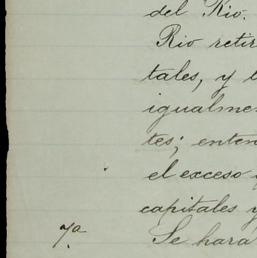 del Rio.
Rio retir
tales, y l
igualmen
tes; enten
el exceso
capitales y
7a Se hara